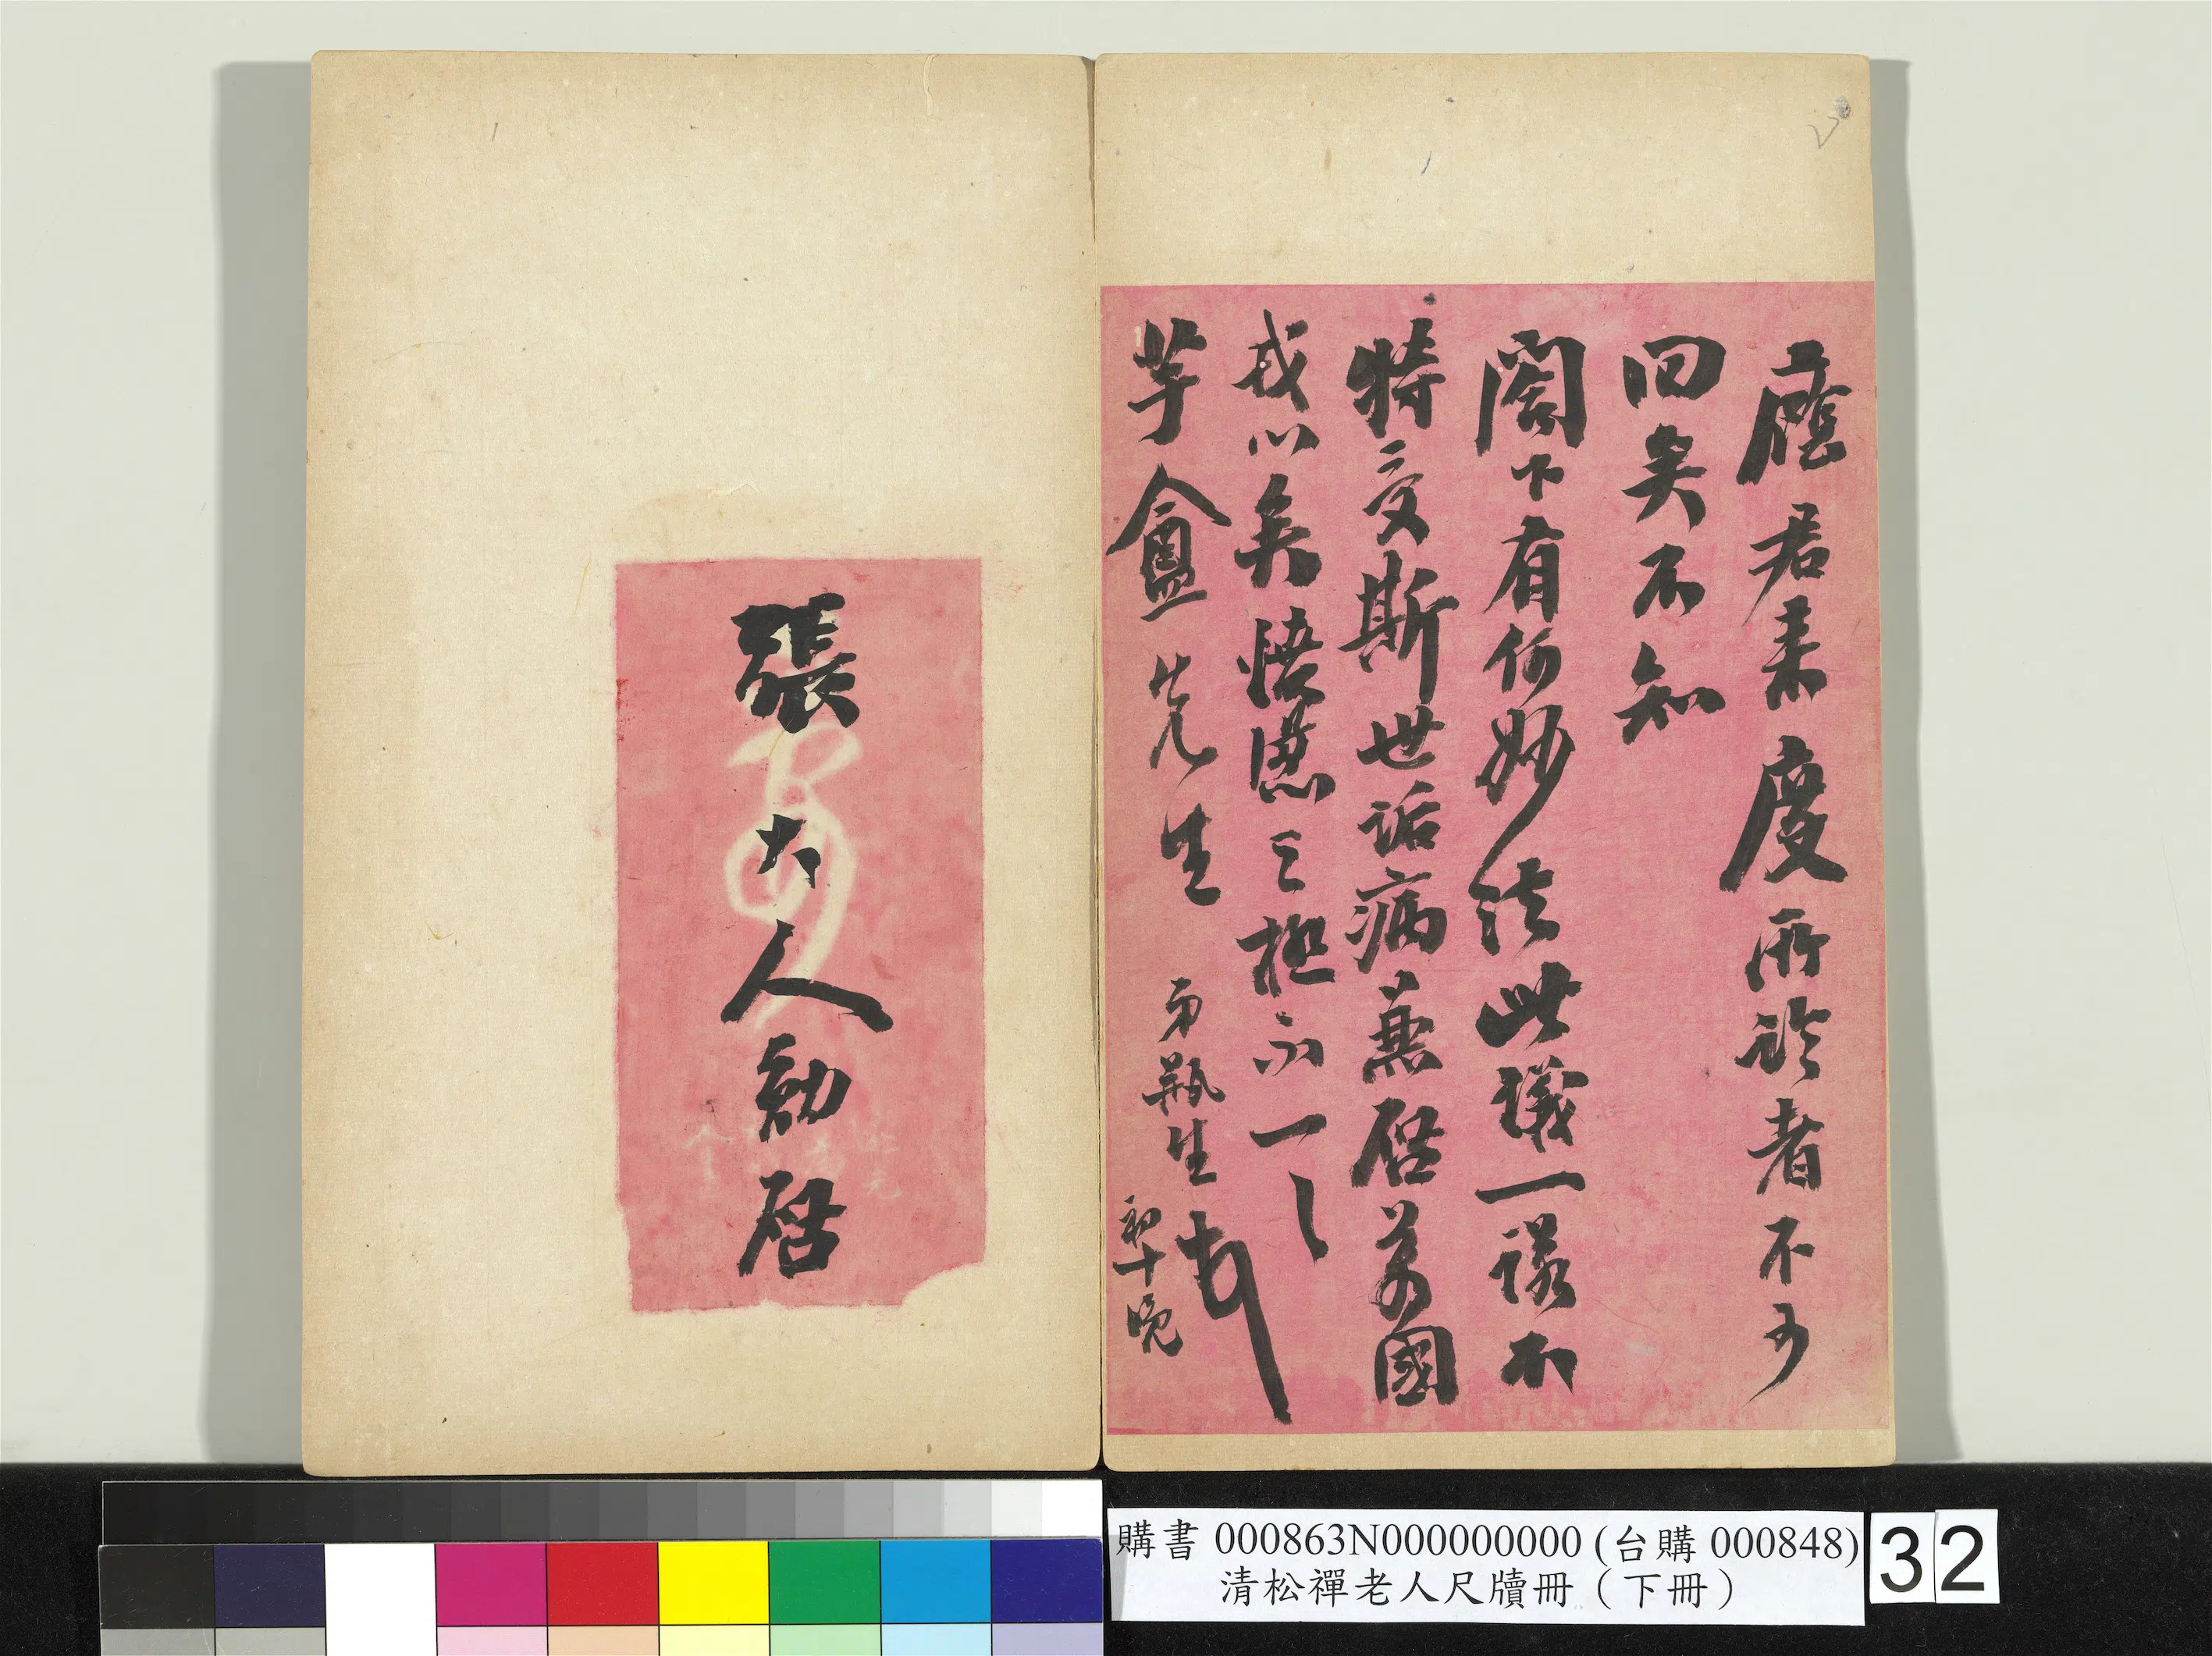 廕君来慶所論者不可
回矣不知
閣下有何妙法此議一諾不
特受斯世詬病兼啓萬國
戎心矣之極不一一
芋盦先生 弟瓶生頓
初十晚
張大人勛啓
購書 000863N000000000 (台購 000848)
清松禪老人尺牘冊（下冊）
32